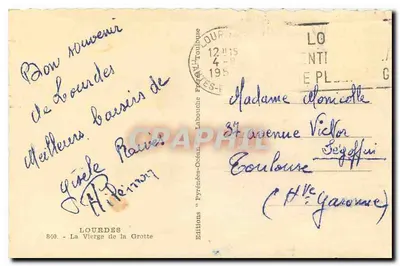 Bon souvenir
de Lourdes
Meilleurs baisers de
Gisèle
LOURDES
808. - La Vierge de la Grotte
Editions "Pyrénées-Océan" Labouche Frères, Toulouse
12H15
4
195
LO
ENTI
E PL
G
Madame Monicolle
37 avenue Victor
Ségoffin
Toulouse
(Hte Garonne)
CPARAMA